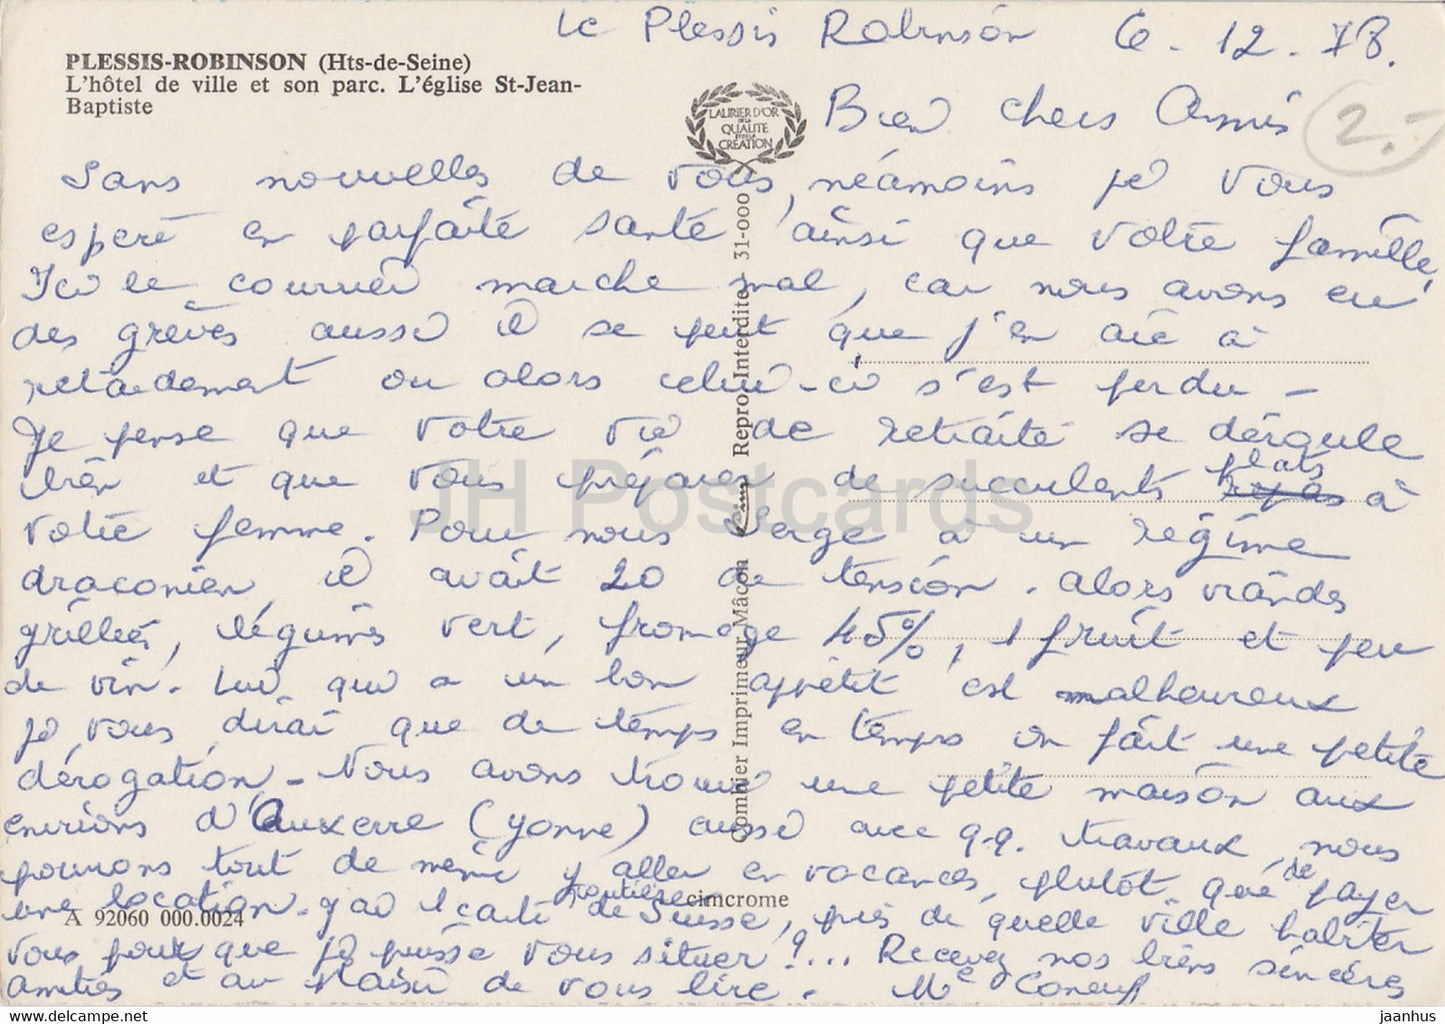 Le Plessis Robinson 6.12.78.
PLESSIS-ROBINSON (Hts-de-Seine)
L'hôtel de ville et son parc. L'église St-Jean-
Baptiste
LAURIER D'OR
DE LA
QUALITÉ
ET DE LA
CRÉATION
Bien chers Amis
2.-
Sans nouvelles de vous, néamoins je vous
espère en parfaite santé ainsi que votre famille,
Ici le courrier marche mal, car nous avons eu
des grèves aussi il se peut que j'en aie à
retardement ou alors celui-ci s'est perdu -
Je pense que votre vie de retraité se dérgule
bien et que vous préparez de succulents plats à
votre femme. Pour nous Serge a un régime
draconien, il avait 20 de tension. Alors viandes
grillées, légumes vert, fromage 45%, 1 fruit et peu
de vin. Lui qui a un bon appétit est malheureux
je vous dirai que de temps en temps on fait une petite
dérogation - Nous avons trouvé une petite maison aux
environs d'Auxerre (Yonne) aussi avec q.q. travaux, nous
pourrons tout de même y aller en vacances, plutôt que de payer
une location. J'ai 1 carte routière de Suisse, près de quelle ville habiter
vous pour que je puisse vous situer ?... Recevez nos biens sincères
amitiés et au plaisir de vous lire. Me
Combier Imprimeur Mâcon Cim Repro. Interdite 31-000
cimcrome
A 92060 000.0024
JH Postcards
jaanhus — https://www.jaanhus.com